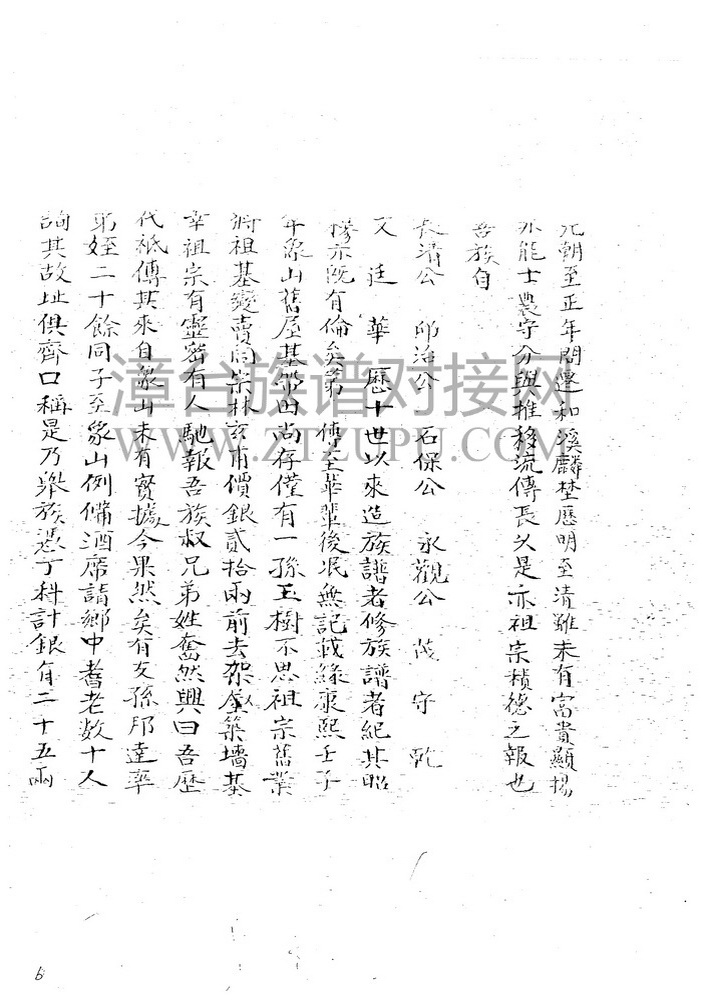 元朝至正年間遷和溪麟埜歷明至清雖未有富貴顯揚
亦能士農守分與推移流傳長久是亦祖宗積德之報也
吾族自
長清公 邱治公 石保公 永觀公 茂 守 乾
文 廷 華 歷十世以來造族譜者修族譜者紀其昭
穆亦既有倫矣第 傳至華輩後泯無記載緣康熙壬子
年象山舊屋基 田尚存僅有一孫玉樹不思祖宗舊業
將祖基變賣同宗林亥甫價銀貳拾兩前去架屋築墻基
幸祖宗有靈密有人馳報吾族叔兄弟姪奮然興曰吾歷
代祇傳其來自象山未有實據今果然矣有友孫邦達率
弟姪二十餘同予至象山例備酒席請鄉中耆老數十人
詢其故址俱齊口稱是乃舉族憑丁科計銀有二十五兩
漳台族谱对接网
WWW.ZTZUPU.COM
6